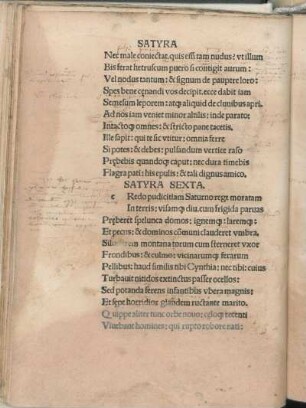 SATYRA
Nec male coniectat. quis enim tam nudus? ut illum
Bis ferat hetruscum puero si contigit aurum:
Vel nodus tantum: & signum de paupere loro:
Spes bene cenandi vos decipit. ecce dabit iam
Semesum leporem: atq; aliquid de clunibus apri.
Ad nos iam veniet minor altilis: inde parato:
Intactoq; omnes: & stricto pane tacetis.
Ille sapit: qui te sic utitur: omnia ferre
Si potes: & debes: pulsandum vertice raso
Prębebis quandoq; caput: nec dura timebis
Flagra pati: his epulis: & tali dignus amico.
SATYRA SEXTA.
c Redo pudicitiam Saturno rege moratam
In terris: visamq; diu. cum frigida paruas
Pręberet spelunca domos: ignemq; laremq:
Et pecus: & dominos cōmuni clauderet vmbra.
montana torum cum sterneret vxor
Frondibus: & culmo: vicinarumq; ferarum
Pellibus: haud similis tibi Cynthia: nec tibi: cuius
Turbauit nitidos extinctus passer ocellos:
Sed potanda ferens infantibus vbera magnis:
Et sępe horridior glandem ructante marito.
Quippe aliter tunc orbe nouo: cęloq; recenti
Viuebant homines: qui rupto robore nati: